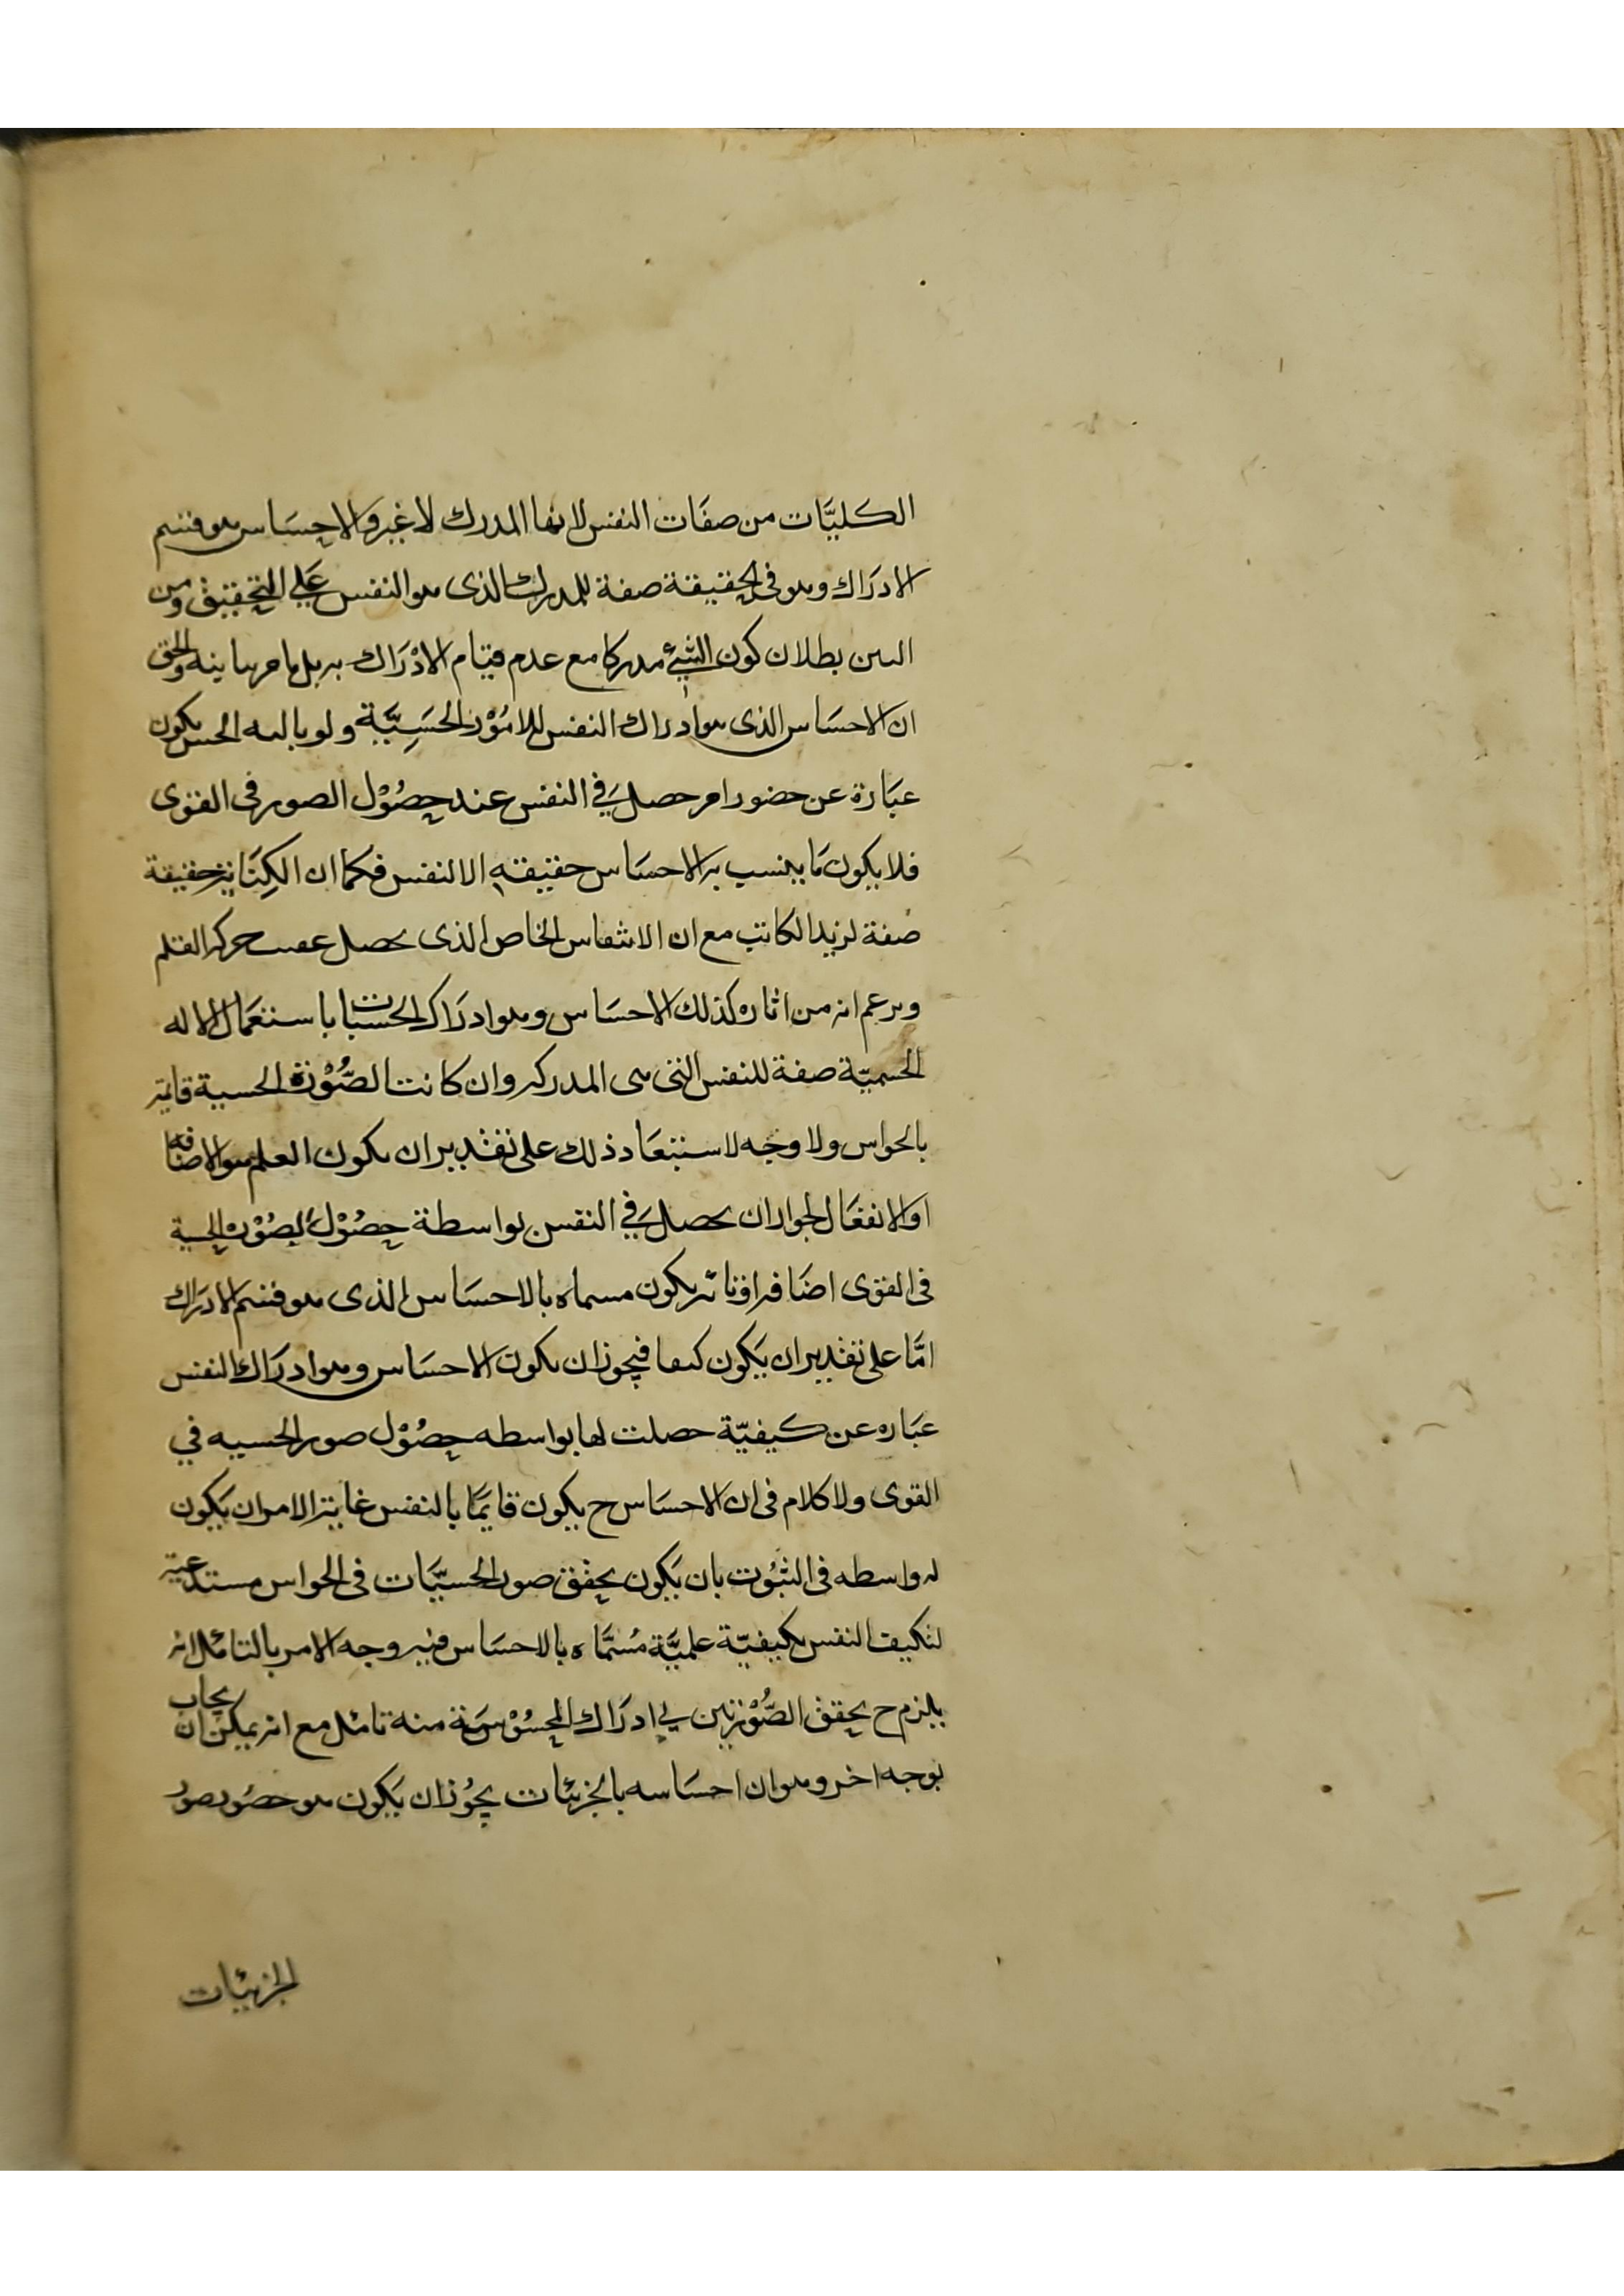 الكليَّات من صفَات النفس لانها المدرك لا غير والاحسَاس هو قسم
الادرَاك وهو فى الحقيقة صفة للمدرك الذى هو النفس عَلى التحقيق ومن
البين بطلان كون الشئ مدركا مع عدم قيَام الادْرَاك به بل بامر يباينه والحق
ان الاحسَاس الذى هو ادراك النفس للامُوْر الحسِيَّة ولو بالية الحس يكون
عبَارة عن حضور امر حصل في النفس عند حصُوْل الصور فى القوى
فلا يكون مَا ينسب به الاحسَاس حقيقة الا النفس فكما ان الكِتَابة حقيقة
صفة لزيد الكاتب مع ان الانتقاس الخاص الذى يحصل عقيب حركة القلم
ويزعم انه من اثاره كذلك الاحسَاس وهو ادرَاك الحسيات باستعمَال الاله
الجسميّة صفة للنفس التى هى المدركة وان كانت الصُّوْرة الحسية قايمة
بالحواس ولا وجه لاستبعَاد ذلك على تقدير ان يكون العلم هو الاضافه
او الانفعَال لجواز ان يحصل في النفس بواسطة حصُوْل الصُوْرة الحسية
فى القوى اضَافة او تاثر يكون مسماه بالاحسَاس الذى هو قسم الادرَاك
امَّا على تقدير ان يَكون كيفا فيجوز ان يكون الاحسَاس وهو ادرَاك النفس
عبَاره عن كيفيّة حصلت لها بواسطه حصُوْل صور الحسيه في
القوى ولا كلام فى ان الاحسَاس ح يكون قايمًا بالنفس غاية الامر ان يَكون
له واسطه فى الثبُوت بان يَكون تحقق صور الحسيَّات فى الحواس مستدعية
لتكيف النفس بكيفيّة علميَّة مُسمَّاه بالاحسَاس فيه وجه الامر بالتامّل انه
يلزم ح تحقق الصُّوْرتين في ادرَاك المحسُوْسَة منه تامّل مع انه يمكن ان يجاب
بوجه اخر وهو ان احسَاسه بالجزئيات يجُوْز ان يَكون هو حصُول صور
الجزئيات